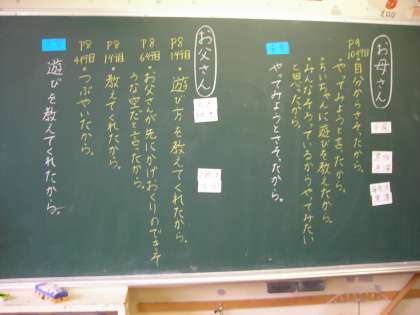 お母さん
P9
10行目
・自分からさそったから。
・やってみようと言ったから。
・ちいちゃんに遊びを教えたから。
・みんなそろっているからやってみたい
と思ったから。
やってみようとさそったから。
お父さん
P8
14行目
遊び方を教えてくれたから。
P8
6行目
・お父さんが先にかげおくりのできそ
うな空だと言ったから。
P8
14行目
教えてくれたから。
P8
4行目
・つぶやいたから。
遊びを教えてくれたから。